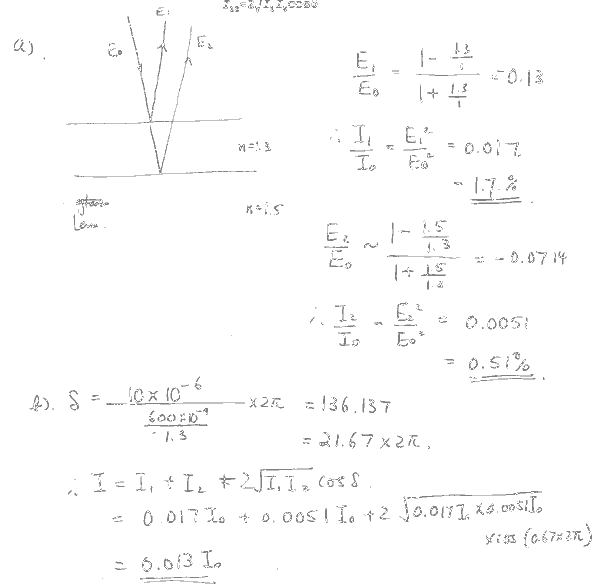 I₁₂=2√I₁I₂cosδ
a).
E₁
E₀
E₂
n=1.3
n=1.5
Lens.
E₁/E₀ = (1 - 1.3/1)/(1 + 1.3/1) = -0.13
∴ I₁/I₀ = E₁²/E₀² = 0.017
= 1.7%.
E₂/E₀ ~ (1 - 1.5/1.3)/(1 + 1.5/1.3) = -0.0714
∴ I₂/I₀ = E₂²/E₀² = 0.0051
= 0.51%.
b). δ = 10×10⁻⁶/(600×10⁻⁹/1.3) ×2π = 136.137
= 21.67×2π.
∴ I = I₁ + I₂ + 2√(I₁I₂) cosδ.
= 0.017I₀ + 0.0051I₀ + 2√(0.017I₀×0.0051I₀)
×cos(0.67×2π)
= 0.013I₀